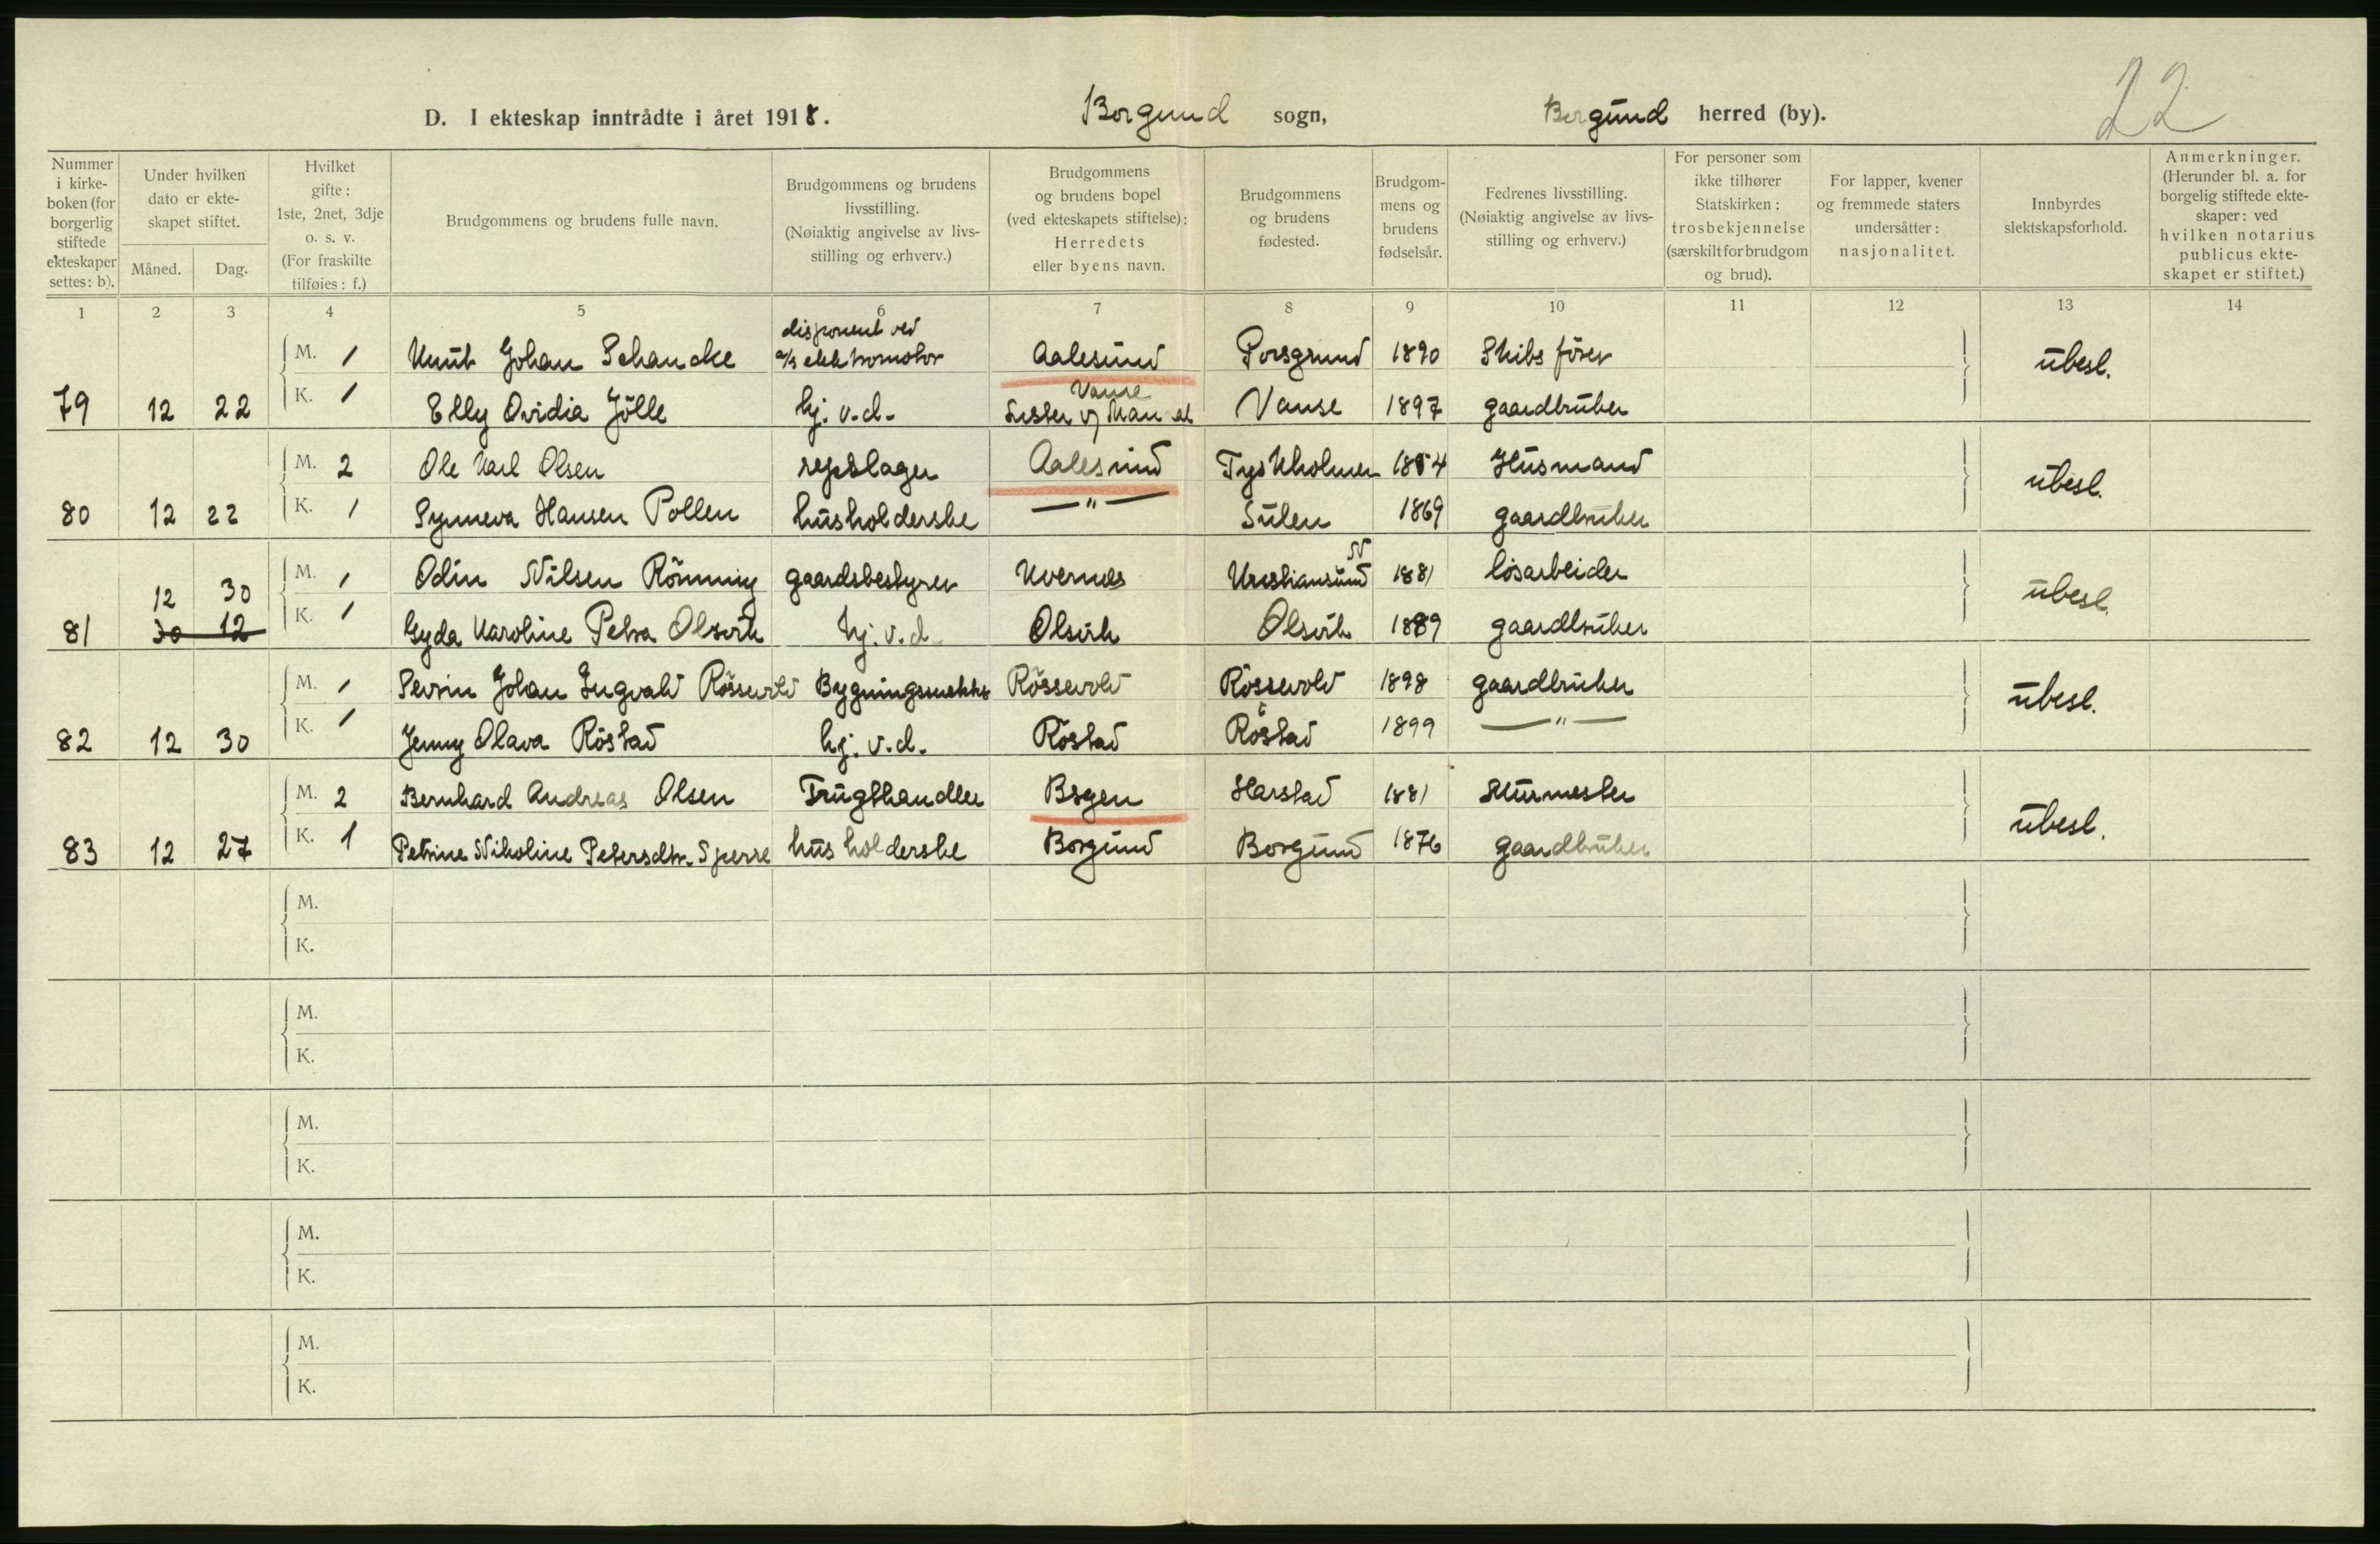 22
D. I ekteskap inntrådte i året 1918. Borgund sogn, Borgund herred (by).
Nummer i kirke- boken (for borgerlig stiftede ekteskaper settes: b).
Under hvilken dato er ekte- skapet stiftet.
Måned. Dag.
Hvilket gifte: 1ste, 2net, 3dje o. s. v. (For fraskilte tilføies: f.)
Brudgommens og brudens fulle navn.
Brudgommens og brudens livsstilling. (Nøiaktig angivelse av livs- stilling og erhverv.)
Brudgommens og brudens bopel (ved ekteskapets stiftelse): Herredets eller byens navn.
Brudgommens og brudens fødested.
Brudgom- mens og brudens fødselsår.
Fedrenes livsstilling. (Nøiaktig angivelse av livs- stilling og erhverv.)
For personer som ikke tilhører Statskirken: trosbekjennelse (særskilt for brudgom og brud).
For lapper, kvener og fremmede staters undersåtter: nasjonalitet.
Innbyrdes slektskapsforhold.
Anmerkninger. (Herunder bl. a. for borgelig stiftede ekte- skaper: ved hvilken notarius publicus ekte- skapet er stiftet.)
1 2 3 4 5 6 7 8 9 10 11 12 13 14
M. 1 Knut Johan Schancke disponent ved a/s elektromotor Aalesund Porsgrund 1890 Skibsfører ubesl.
79 12 22 K. 1 Elly Ovidia Jölle hj. v.d. Vanse Lister og Mandal Vanse 1897 gaardbruker
M. 2 Ole Karl Olsen repslager Aalesund Tyskholmen 1854 Husmand ubesl.
80 12 22 K. 1 Synneva Hansen Pollen husholderske —"— Sulen 1869 gaardbruker
12 30 M. 1 Odin Nilsen Rönning gaardsbestyrer Kvernes Kristiansund N 1881 lösarbeider ubesl.
81 30 12 K. 1 Gyda Karoline Petra Olsvik hj. v.d. Olsvik Olsvik 1889 gaardbruker
M. 1 Sevrin Johan Ingvald Rössevold Bygningssnekker Rössevold Rössevold 1898 gaardbruker ubesl.
82 12 30 K. 1 Jenny Olava Röstad hj. v.d. Röstad Röstad 1899 —"—
M. 2 Bernhard Andreas Olsen Frugthandler Bergen Harstad 1881 Murmester ubesl.
83 12 27 K. 1 Petrine Nikoline Petersdtr. Sperre husholderske Borgund Borgund 1876 gaardbruker
M.
K.
M.
K.
M.
K.
M.
K.
M.
K.